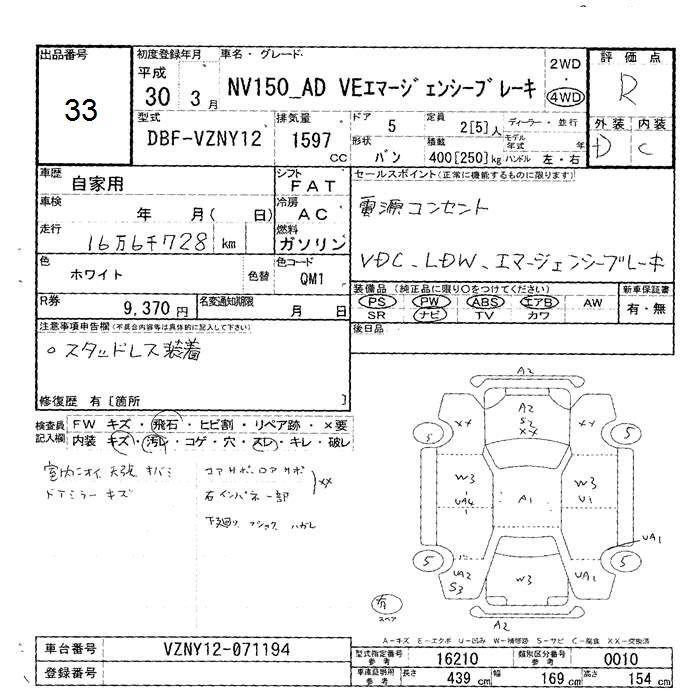 出品番号
33
初度登録年月
平成
30 3 月
車名・グレード
NV150_AD VEエマージェンシーブレーキ
2WD
・
4WD
評価点
R
外装 内装
D C
型式
DBF-VZNY12
排気量
1597
CC
ドア
5
定員
2[5]人
ディーラー・並行
形状
バン
積載
400[250]kg
モデル年式 年
ハンドル 左・右
車歴
自家用
シフト
FAT
車検
年 月( 日)
冷房
AC
走行
16万6千728 km
燃料
ガソリン
色
ホワイト
色替
色コード
QM1
R券
9,370円
名変通知期限
月 日
セールスポイント(正常に機能するものに限ります)
電源コンセント
VDC、LDW、エマージェンシーブレーキ
装備品 (純正品に限り○をつけてください)
PS PW ABS エアB AW
SR ナビ TV カワ
新車保証書
有・無
後日品
注意事項申告欄(不具合内容等は具体的に記入して下さい)
○スタッドレス装着
修復歴 有[箇所 ]
検査員
記入欄
FW キズ・飛石・ヒビ割・リペア跡・×要
内装 キズ・汚レ・コゲ・穴・スレ・キレ・破レ
室内ニオイ 天張 キバミ
ドアミラー キズ
コアサポ、ロアサポ
右インパネ一部
XX
下廻り、ショック ハガレ
A2
A2
S2
XX
XX
XX
5
5
W3
UA4
A1
W3
U1
UA1
5
5
UA2
S3
W3
UA1
A2
有
スペア
A-キズ E-エクボ U-凹み W-補修跡 S-サビ C-腐食 XX-交換済
車台番号
VZNY12-071194
登録番号
型式指定番号
参考
16210
類別区分番号
参考
0010
車庫証明用
参考
長さ
439 cm
幅
169 cm
高さ
154 cm